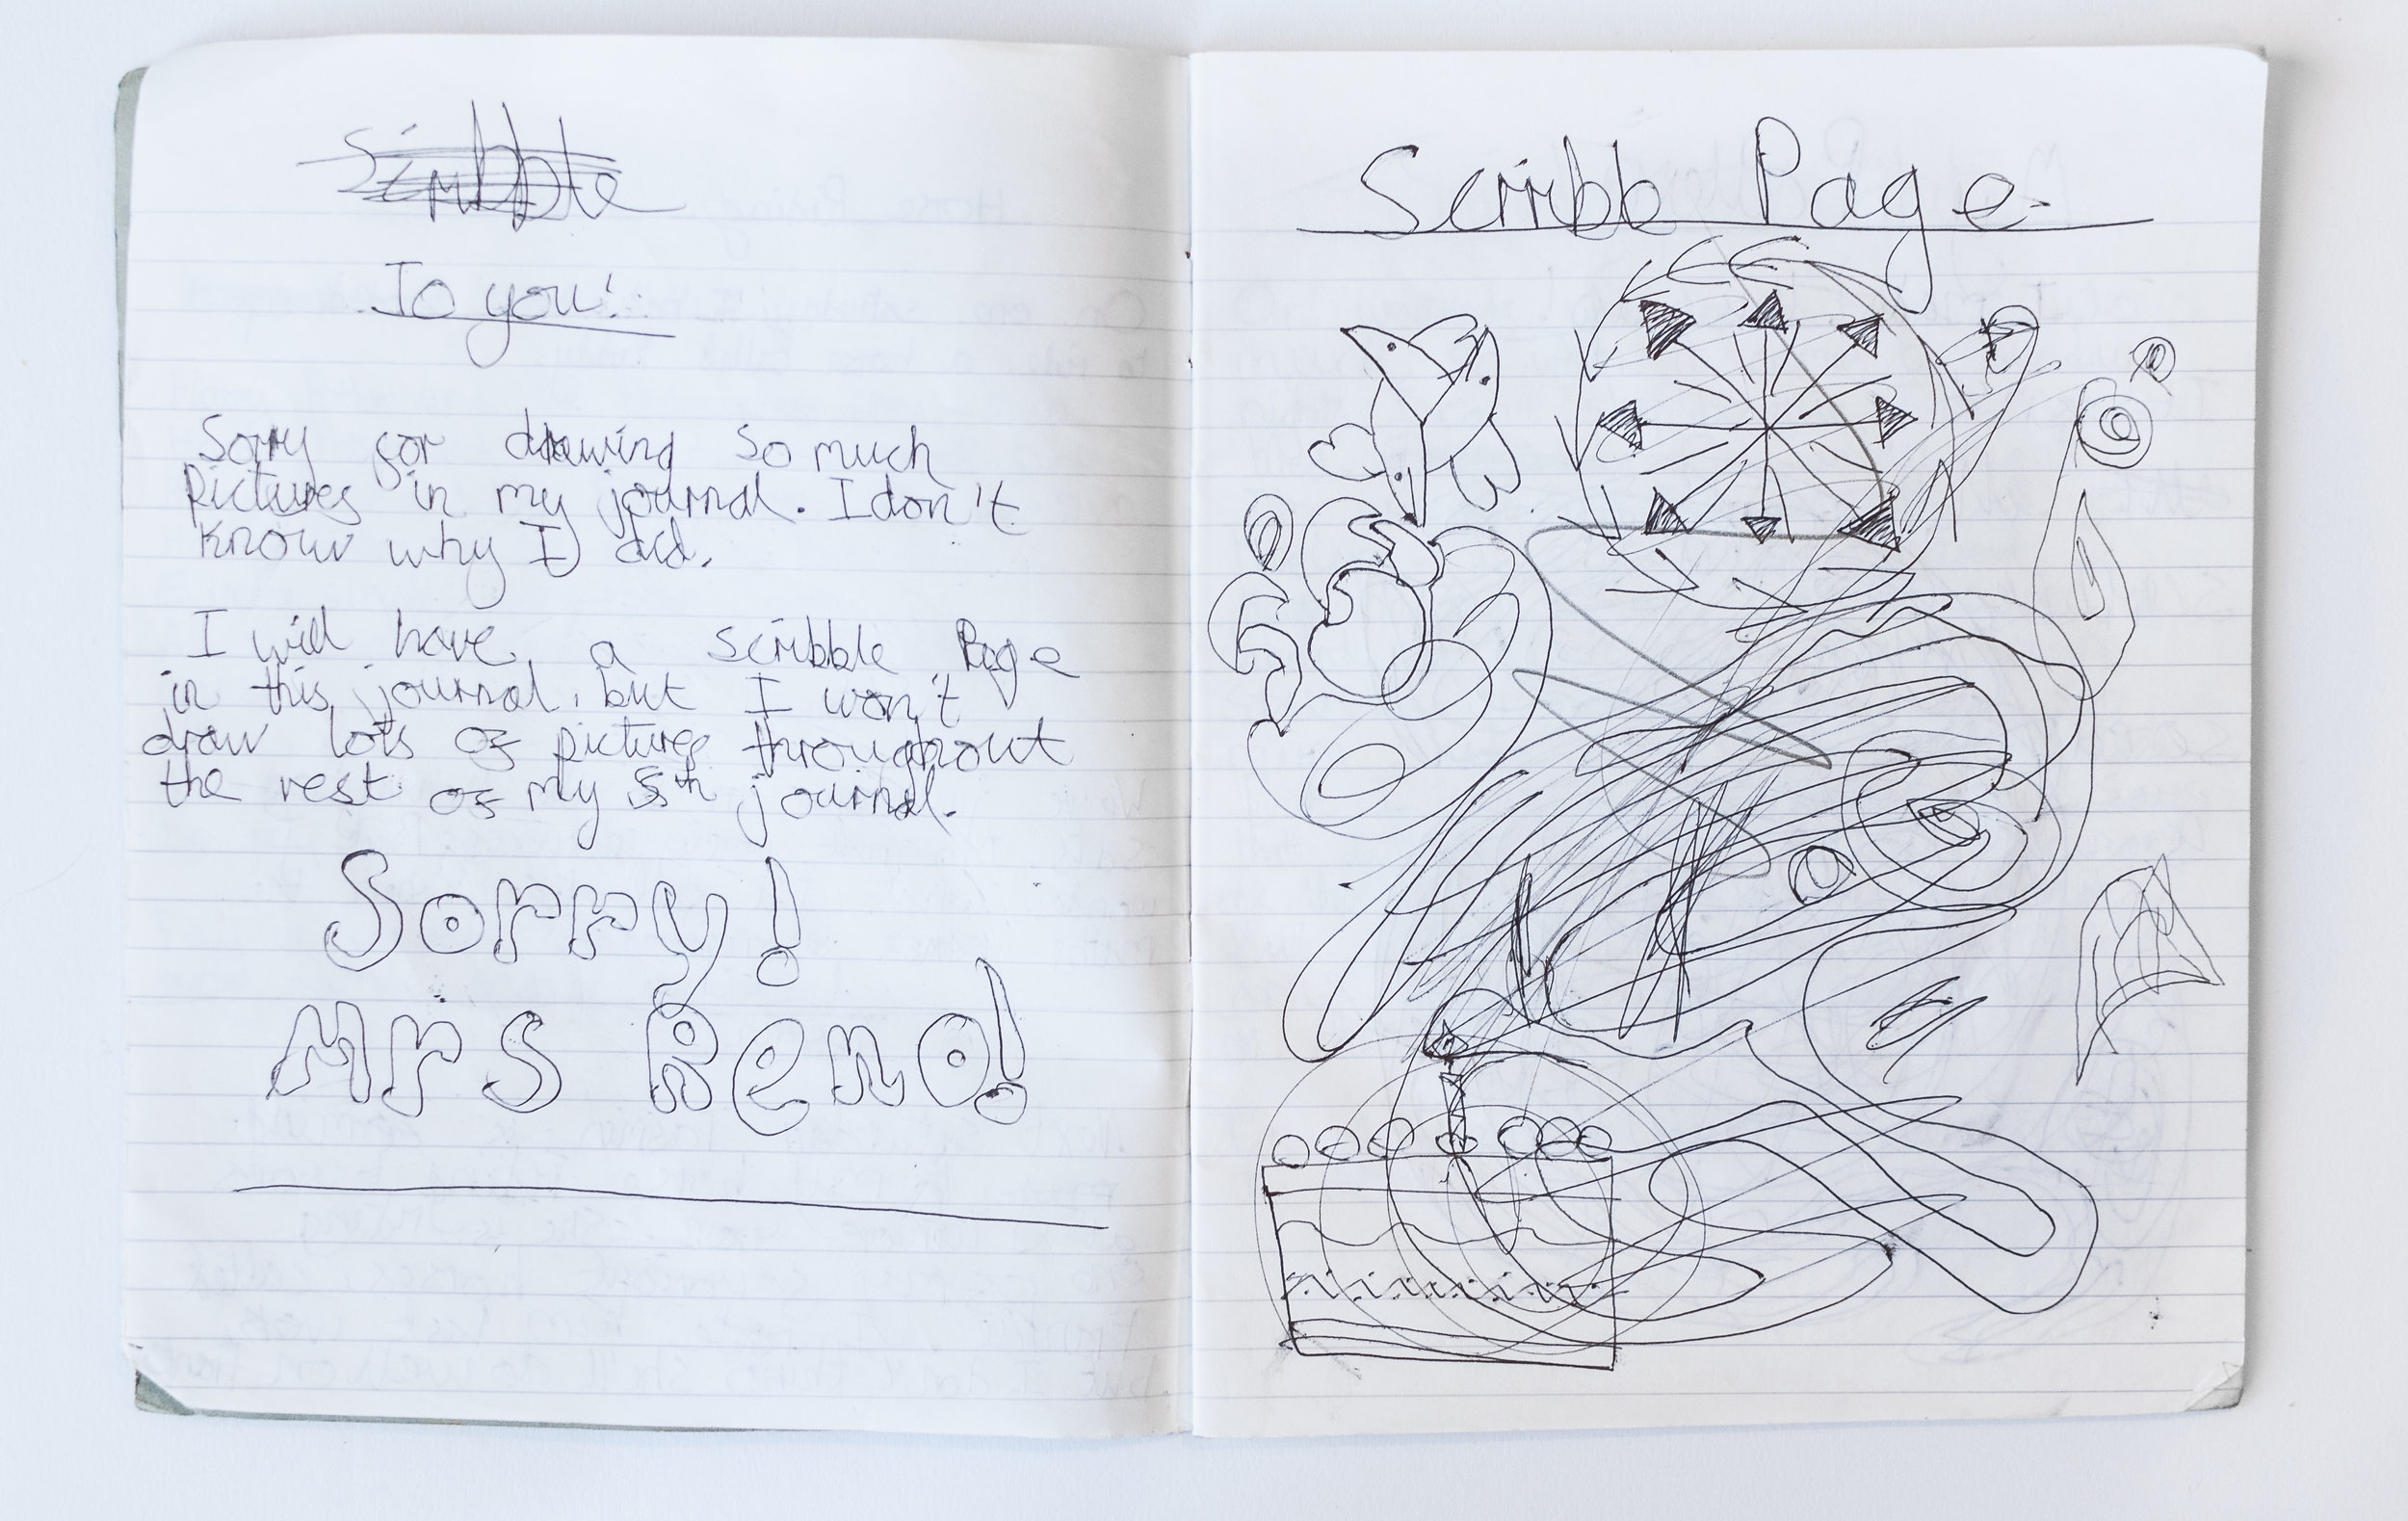 Scribble
To you!
Sorry for drawing so much
Pictures in my journal. I don't
know why I did.
I will have a scribble Page
in this journal, but I won't
draw lots of pictures throughout
the rest of my 5th journal.
Sorry!
Mrs Reno!
Scribb Page